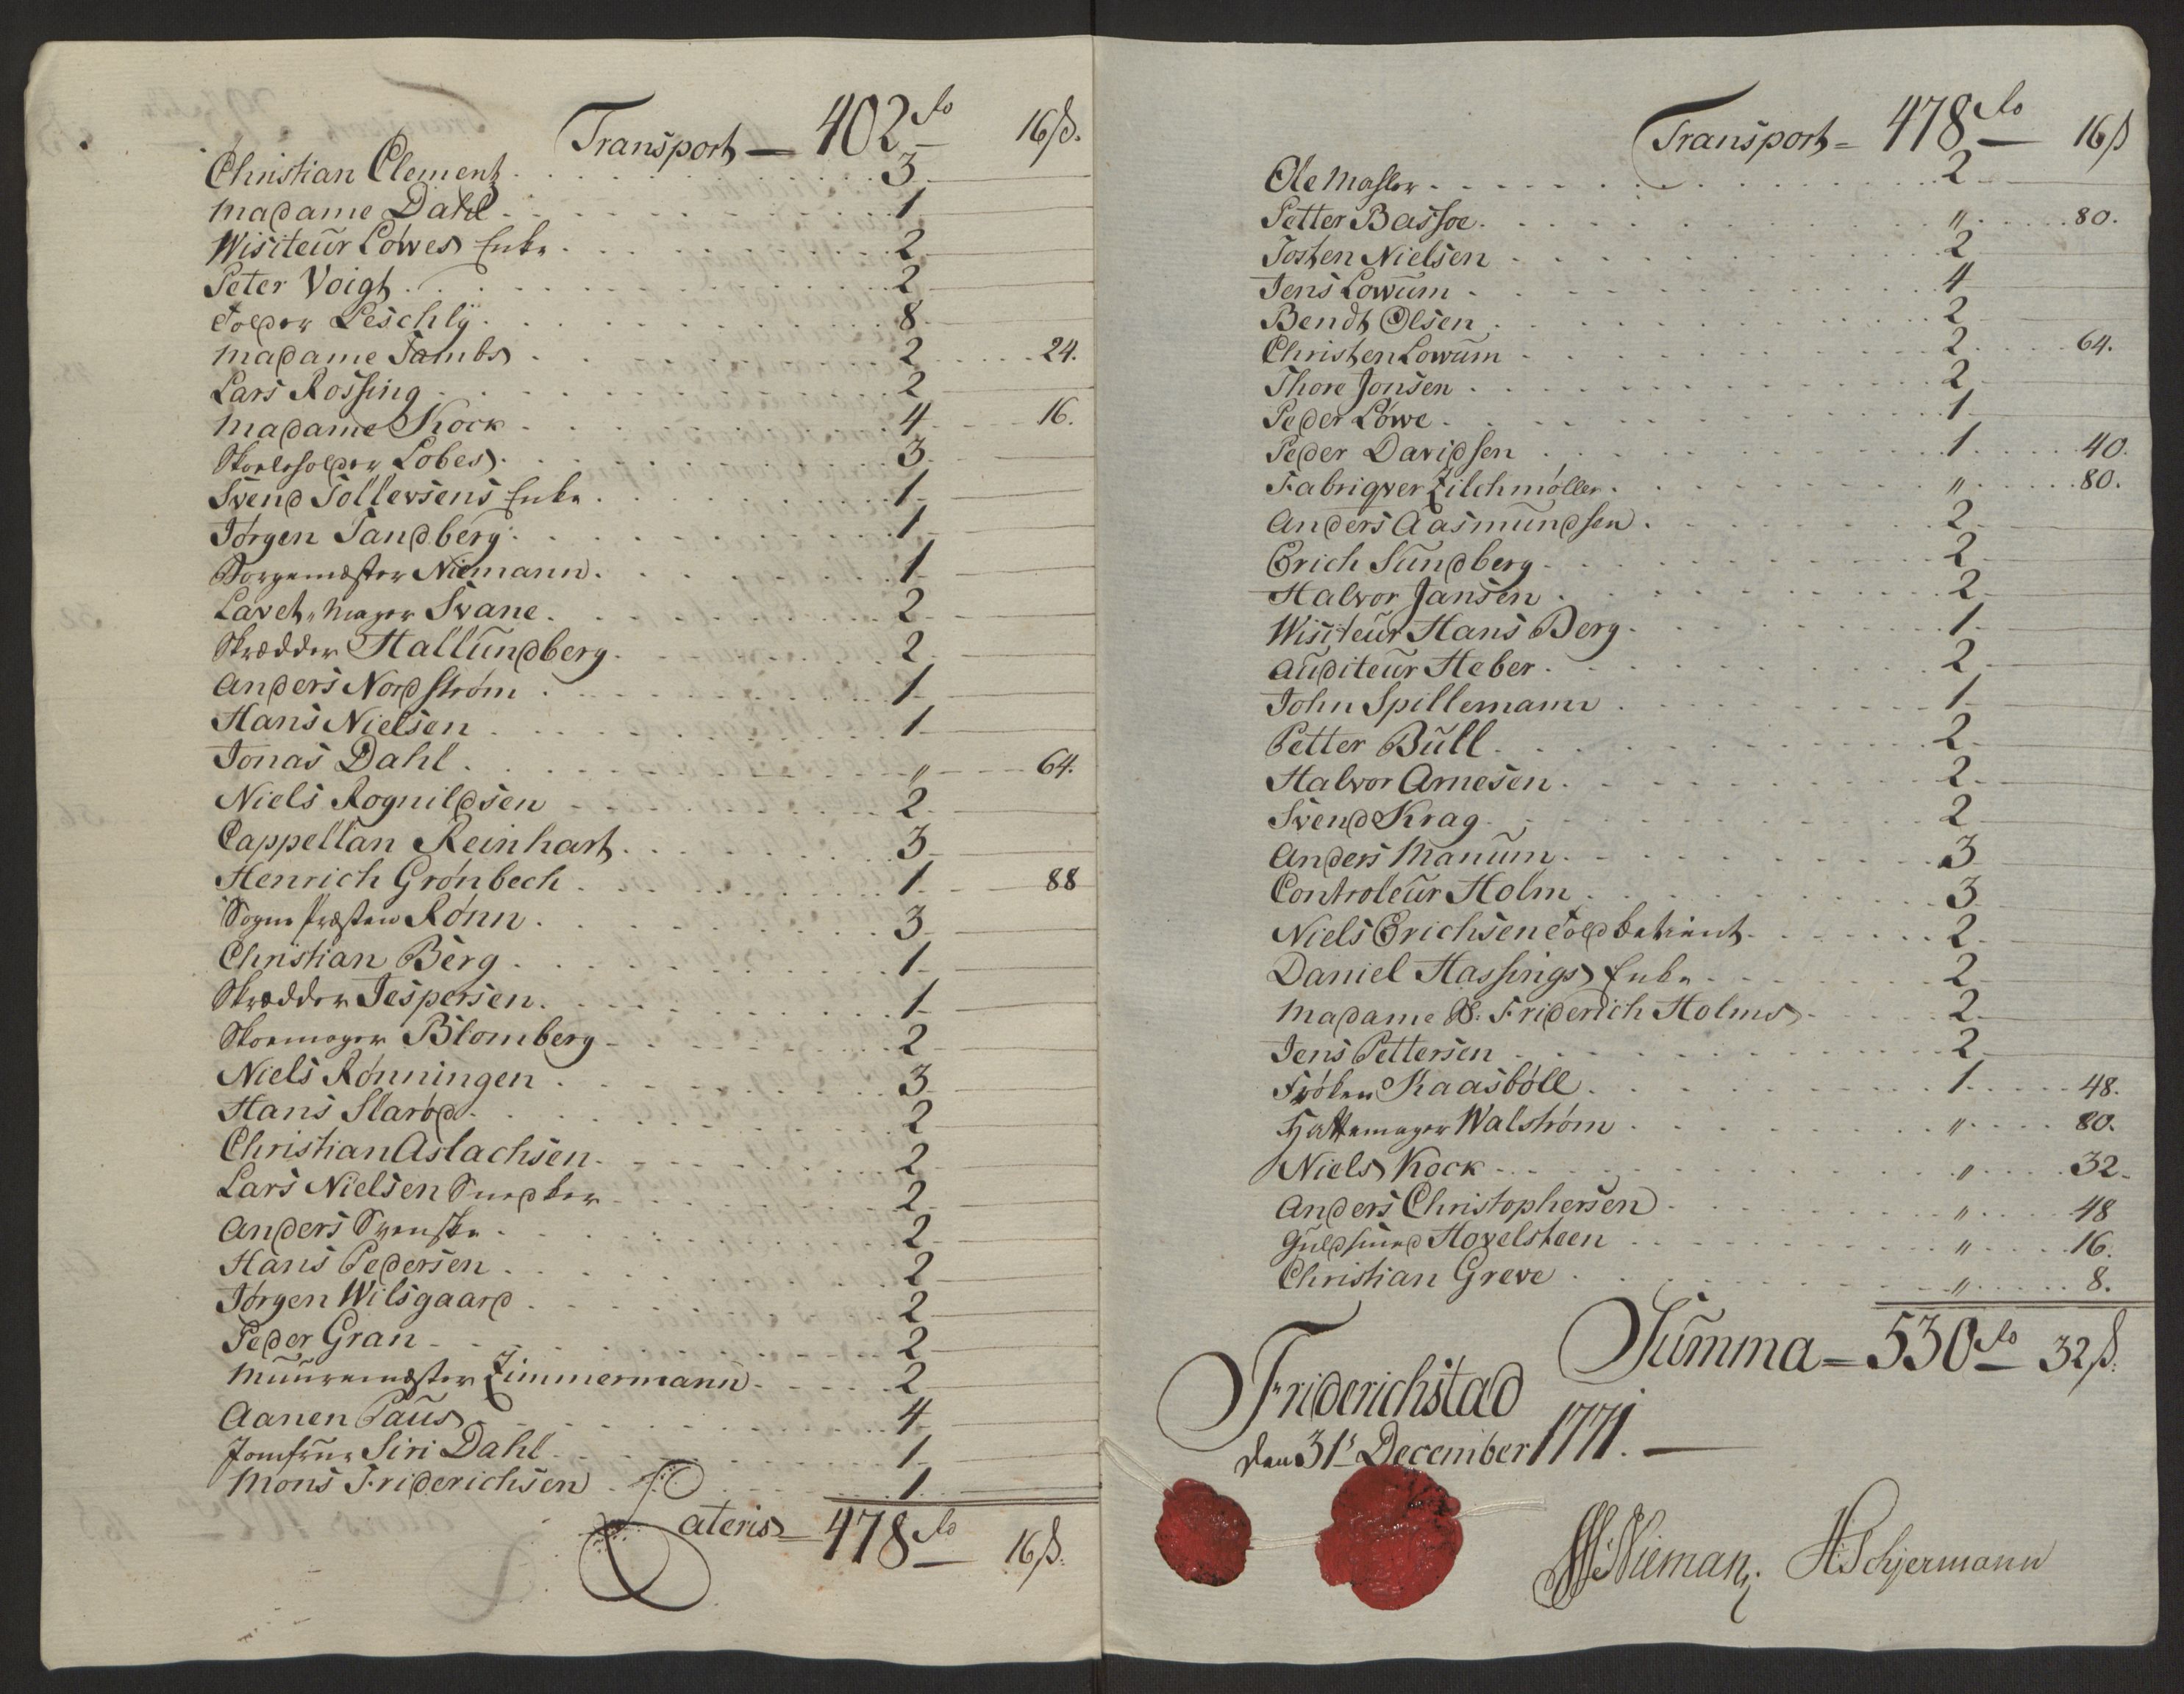 Transport — 402 rdr 16 ß.
Christian Clement . . . 3
Madame Dahl . . . 1
Wisiteur Löwes Enke . . . 2
Peter Voigt . . . 2
Tolder Leschly . . . 8
Madame Jambs . . . 2 . . . 24.
Lars Rossing . . . 2
Madame Kock . . . 4 . . . 16.
Skoeleholder Lobes . . . 3
Svend Tollevsens Enke . . . 1
Jörgen Tandberg . . . 1
Borgemester Niemann . . . 1
Lavet-Mager Svane . . . 2
Skrædder Hallundberg . . . 2
Anders Nordström . . . 1
Hans Nielsen . . . 1
Jonas Dahl . . . " . . . 64.
Niels Rognildsen . . . 2
Cappellan Reinhart . . . 3
Henrich Grönbech . . . 1 . . . 88
Sogne Præsten Rönn . . . 3
Christian Berg . . . 1
Skrædder Jespersen . . . 1
Skoemager Blomberg . . . 2
Niels Rönningen . . . 3
Hans Slaröd . . . 2
Christian Aslachsen . . . 2
Lars Nielsen Snedker . . . 2
Anders Svenske . . . 2
Hans Pedersen . . . 2
Jörgen Wilsgaard . . . 2
Peder Gran . . . 2
Muuremester Zimmermann . . . 2
Aanen Paus . . . 4
Jomfrue Siri Dahl . . . 1
Mons Friderichsen . . . 1
Lateris — 478 rdr 16 ß.
Transport — 478 rdr 16 ß
Ole Mahler . . . 2
Petter Bassoe . . . " . . . 80.
Josten Nielsen . . . 2
Jens Lowum . . . 4
Bendt Olsen . . . 2
Christen Lowum . . . 2 . . . 64.
Thore Jonsen . . . 2
Peder Löwe . . . 1
Peder Davidsen . . . 1 . . . 40.
Fabriqver Zilchmöller . . . " . . . 80.
Anders Aasmundsen . . . 2
Erich Sundberg . . . 2
Halvor Jansen . . . 2
Wisiteur Hans Berg . . . 1
Auditeur Heber . . . 2
John Spillemann . . . 1
Petter Bull . . . 2
Halvor Arnesen . . . 2
Svend Krag . . . 2
Anders Manum . . . 3
Controleur Holm . . . 3
Niels Erichsen Toldbetient . . . 2
Daniel Hassings Enke . . . 2
Madame Friderich Holms . . . 2
Jens Pettersen . . . 2
Fröken Kaasböll . . . 1 . . . 48.
Hattemager Walström . . . " . . . 80.
Niels Kock . . . " . . . 32.
Anders Christophersen . . . " . . . 48
Guldsmed Hovelsteen . . . " . . . 16.
Christian Greve . . . " . . . 8.
Summa — 530 rdr 32 ß.
Friderichstad
den 31t December 1771. —
Nieman. H Schjermann